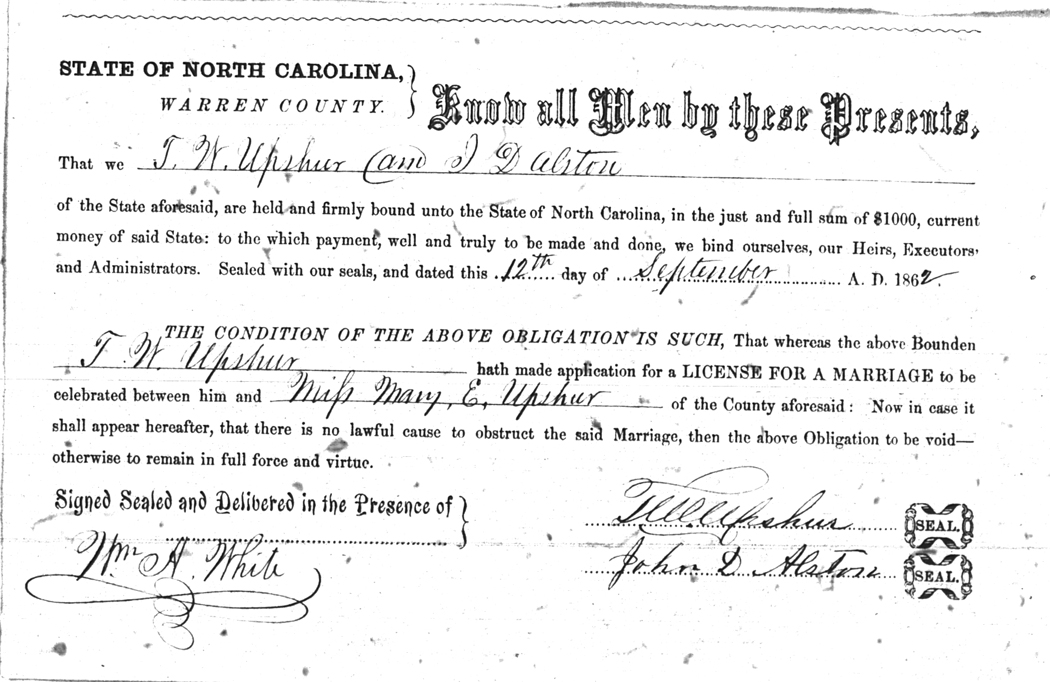 STATE OF NORTH CAROLINA,
WARREN COUNTY.
Know all Men by these Presents,
That we T. W. Upshur and J D Alston
of the State aforesaid, are held and firmly bound unto the State of North Carolina, in the just and full sum of $1000, current
money of said State: to the which payment, well and truly to be made and done, we bind ourselves, our Heirs, Executors,
and Administrators. Sealed with our seals, and dated this 12th day of September A. D. 1862.
THE CONDITION OF THE ABOVE OBLIGATION IS SUCH, That whereas the above Bounden
T. W. Upshur hath made application for a LICENSE FOR A MARRIAGE to be
celebrated between him and Miss Mary, E, Upshur of the County aforesaid: Now in case it
shall appear hereafter, that there is no lawful cause to obstruct the said Marriage, then the above Obligation to be void—
otherwise to remain in full force and virtue.
Signed Sealed and Delivered in the Presence of
T W Upshur SEAL.
Wm A. White
John D Alston SEAL.